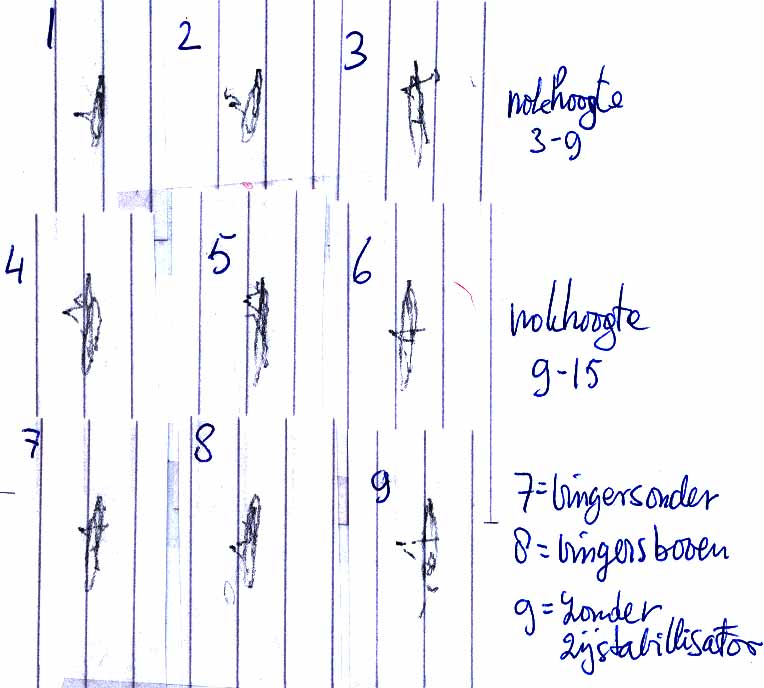 1
2
3
nokhoogte
3-9
4
5
6
nokhoogte
9-15
7
8
9
7=vingersonder
8=vingersboven
9=zonder
zijstabillisator